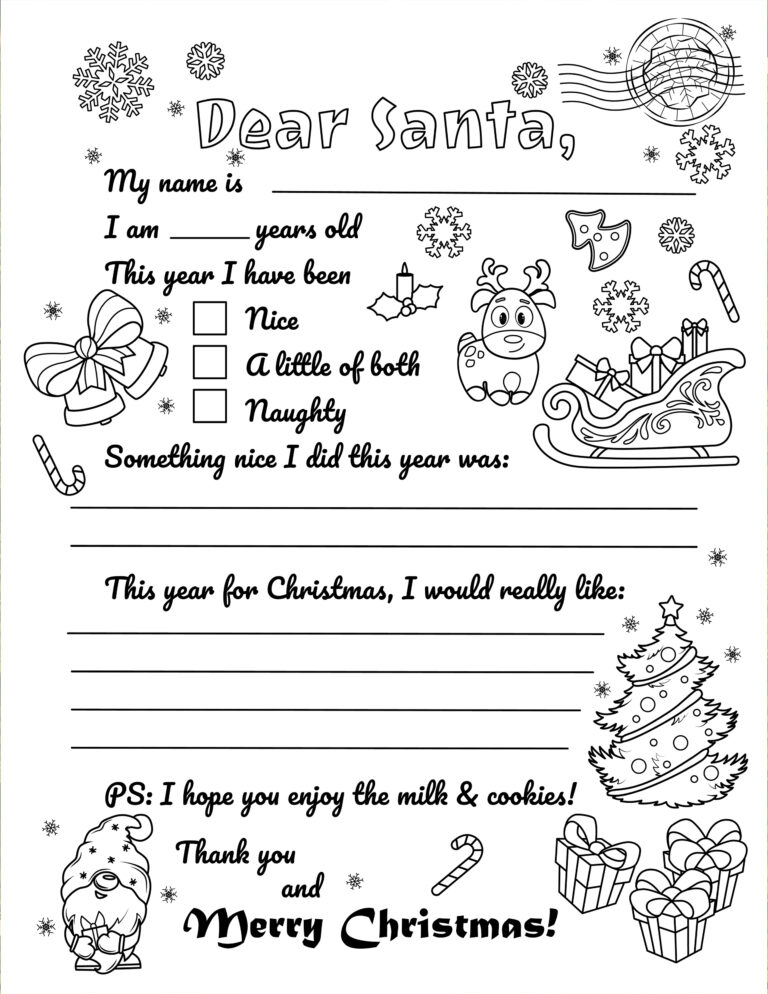 Dear Santa,
My name is
I am ______ years old
This year I have been
Nice
A little of both
Naughty
Something nice I did this year was:
This year for Christmas, I would really like:
PS: I hope you enjoy the milk & cookies!
Thank you
and
Merry Christmas!